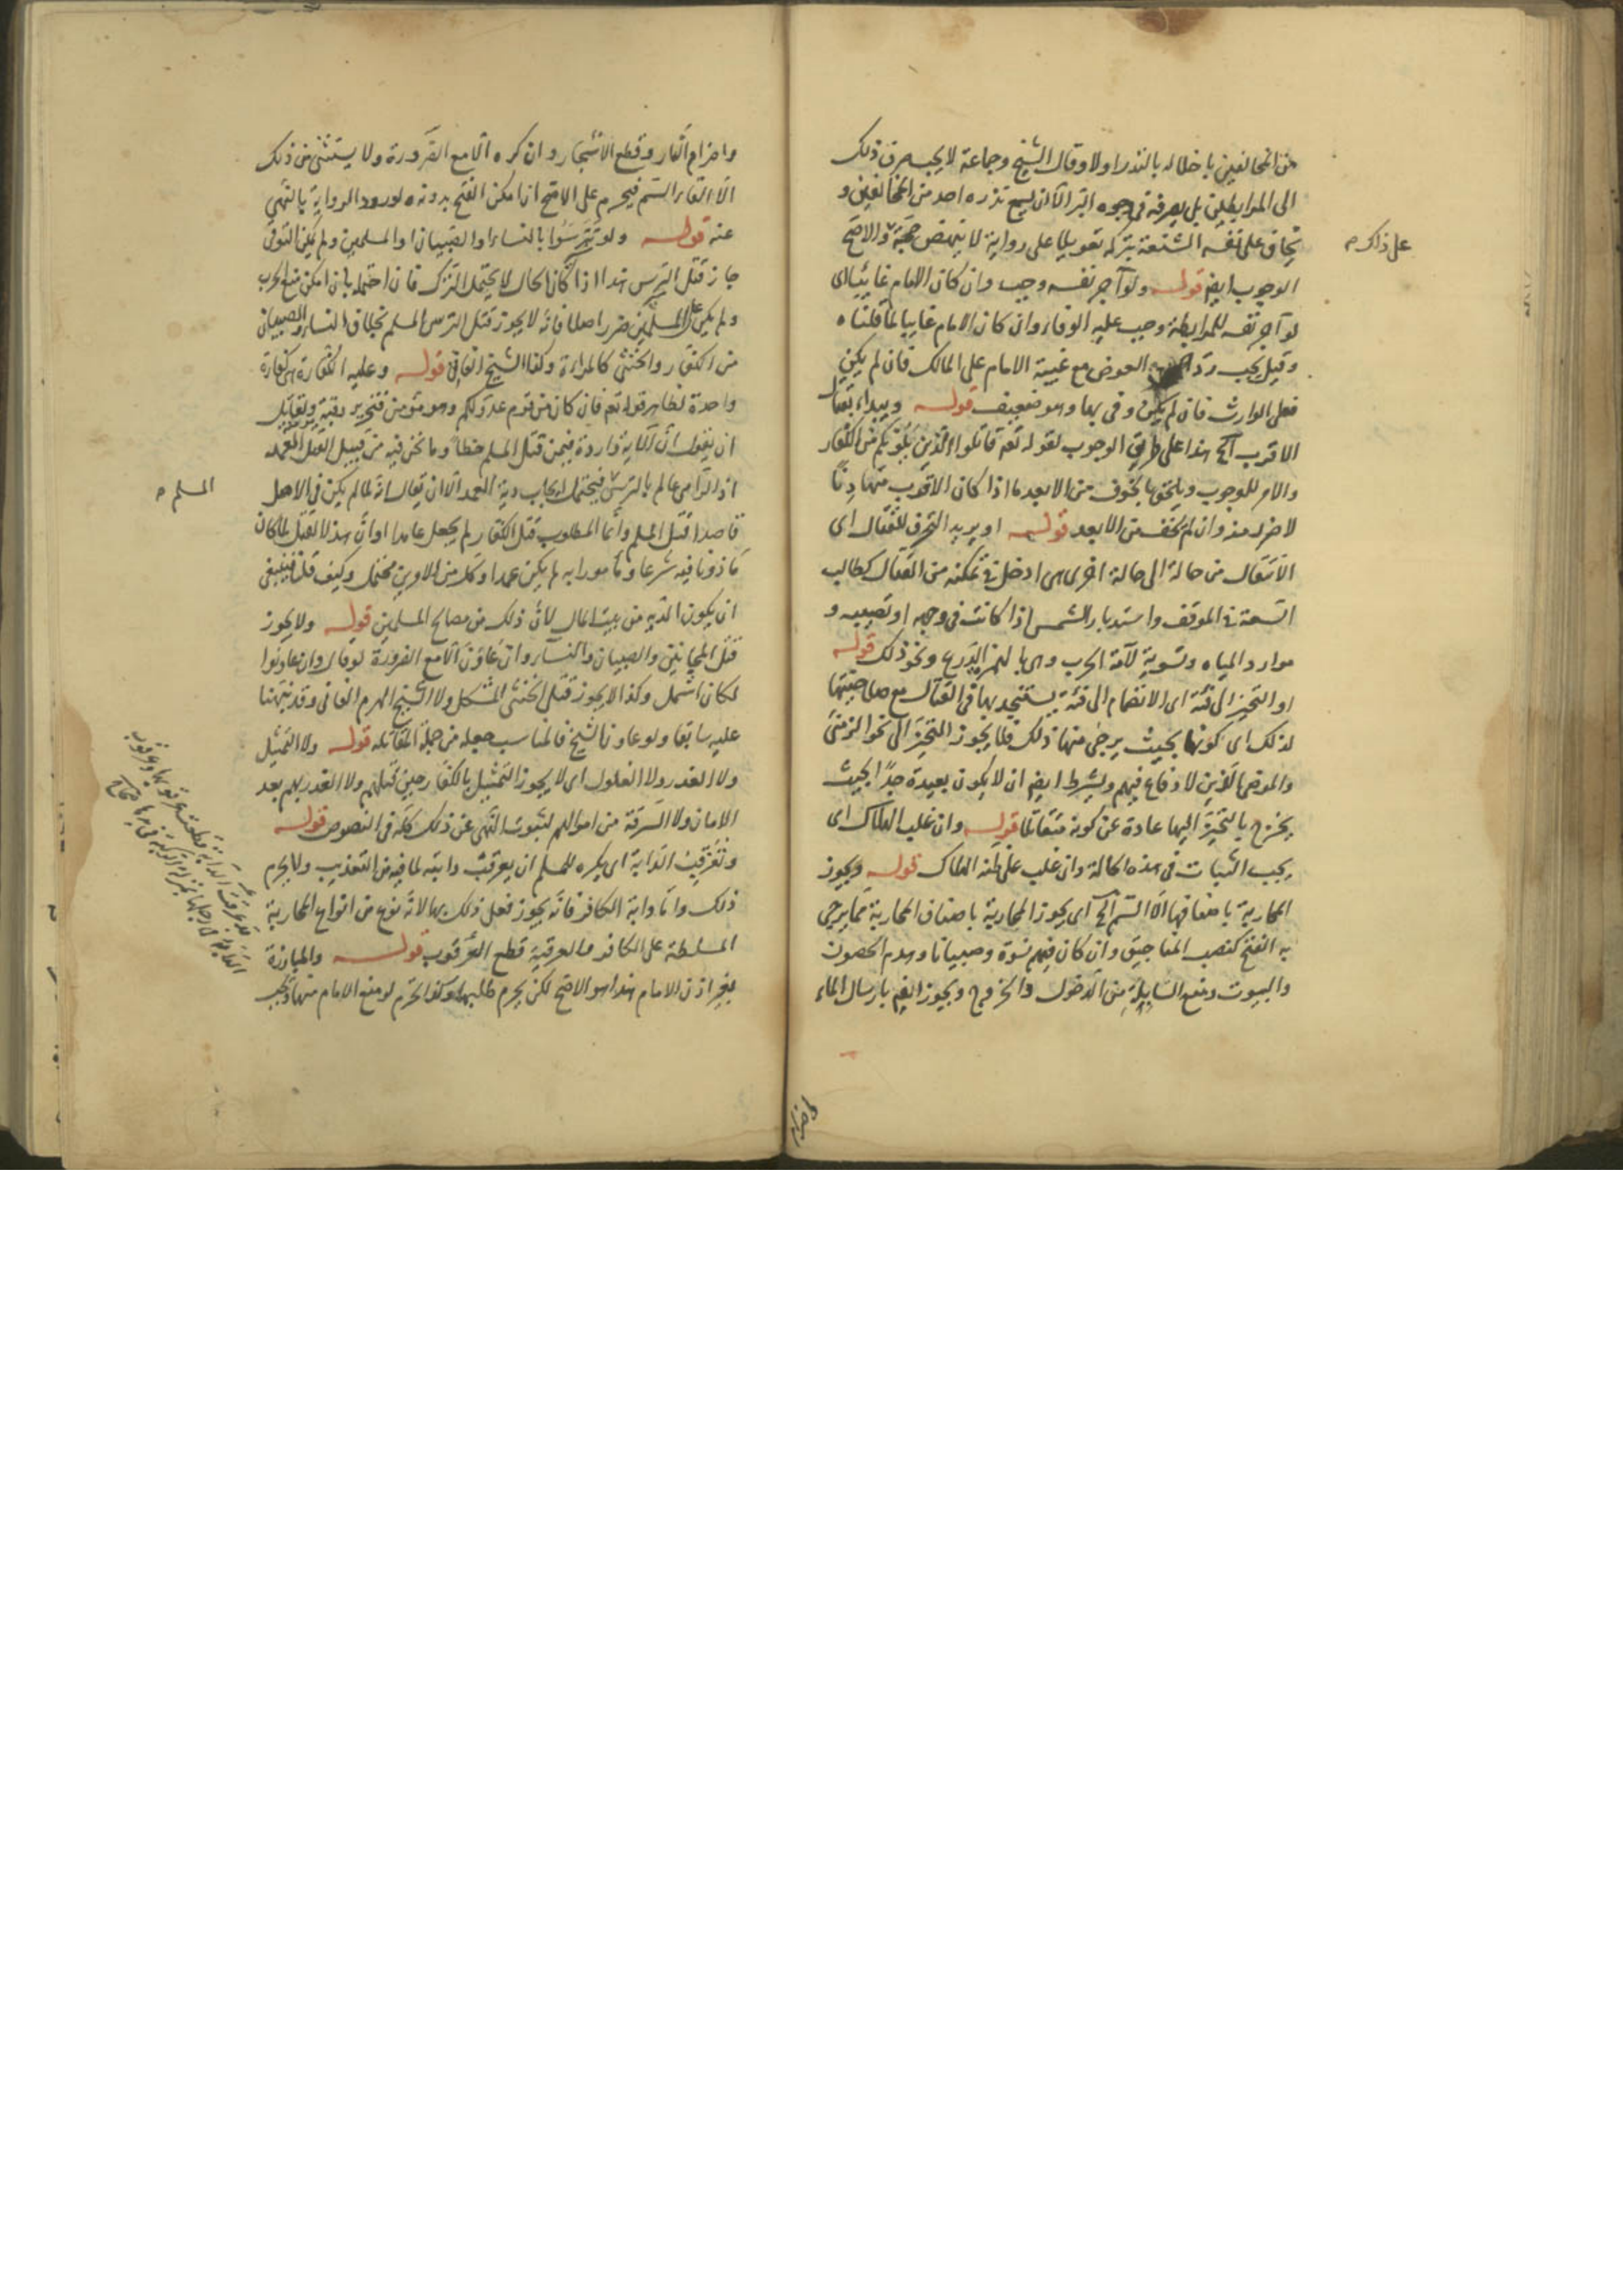 من المخالفين باخلاله بالنذر اولا وقال الشيخ وجماعة لا يجب صرف ذلك
الى المرابطين بل يصرفه في وجوه البر الا ان يسمع نذره احد من المخالفين و
يخاف على نفسه الشنعة بتركه تعويلا على رواية لا ينهض حجة والاصح
على ذاك م
الوجوب ايضا قوله ولو آجر نفسه وجب وان كان الامام غائبا اى
لو آجر نفسه للمرابطة وجب عليه الوفاء وان كان الامام غايبا لما قلناه
وقيل يجب رد العوض مع غيبة الامام على المالك فان لم يكن
فعلى الوارث فان لم يكن وفى بها وهو ضعيف قوله ويبداء بقتال
الاقرب الخ هذا على طريق الوجوب لقوله تعم قاتلوا الذين يلونكم من الكفار
والامر للوجوب ويلحق بالخوف من الابعد ما اذا كان الاقرب مهادنا
لا ضرر منه وان لم يخف من الابعد قوله او يريد التحرف للقتال اى
الانتقال من حالة الى حالة اخرى هى ادخل في تمكنه من القتال كطالب
السعة في الموقف واستدبار الشمس اذا كانت فى وجهه او تصيبه و
موارد المياه وتسوية لآمة الحرب وهى بالهمز الدرع ونحو ذلك قوله
او التحيز الى فئة اى الانضمام الى فئة يستنجد بها في القتال مع صلاحيتها
لذلك اى كونها بحيث يرجى منها ذلك فلا يجوز التحيز الى نحو الزمنى
والمرضى الذين لا دفاع فيهم ويشترط ايضا ان لا يكون بعيدة جدا بحيث
يخرج بالتحيز اليها عادة عن كونه مقاتلا قوله وان غلب الهلاك اى
يجب الثبات فى هذه الحالة وان غلب على ظنه الهلاك قوله ويجوز
المحاربة باصنافها الا السم الخ اى يجوز المحاربة باصناف المحاربة مما يرجى
به الفتح كنصب المناجيق وان كان فيهم نسوة وصبيانا وهدم الحصون
والبيوت ومنع السابلة من الدخول والخروج ويجوز ايضا بارسال الماء
واضرام النار وقطع الاشجار وان كره الا مع الضرورة ولا يستثنى من ذلك
الا القاء السم فيحرم على الاصح اذا امكن الفتح بدونه لورود الرواية بالنهى
عنه قوله ولو تترسوا بالنساء او الصبيان او المسلمين ولم يمكن التوقى
جاز قتل الترس هذا اذا كان الحال لا يحتمل الترك فان احتمله بان امكن منع الحرب
ولم يكن على المسلمين ضرر اصلا فانه لا يجوز قتل الترس المسلم بخلاف النساء والصبيان
من الكفار والخنثى كالمراءة وكذا الشيخ الفانى قوله وعليه الكفارة هى كفارة
واحدة لظاهر قوله تعم فان كان من قوم عدو لكم وهو مؤمن فتحرير رقبة ولقائل
ان يقول ان الآية واردة فيمن قتل المسلم خطأ وما نحن فيه من قبيل القتل العمد
اذ الرامى عالم بالترس فيحتمل ايجاب دية العمد الا ان يقال انه لما لم يكن في الاصل
المسلم م
قاصدا قتل المسلم وانما المطلوب قتل الكفار لم يجعل عامدا او ان هذا القتل لما كان
مأذونا فيه شرعا ومأمورا به لم يكن عمدا وكل من الامرين محتمل وكيف قلنا فينبغى
ان يكون الدية من بيت المال لان ذلك من مصالح المسلمين قوله ولا يجوز
قتل المجانين والصبيان والنساء وان عاون الا مع الضرورة لو قال وان عاونوا
لكان اشمل وكذا لا يجوز قتل الخنثى المشكل ولا الشيخ الهرم الفانى وقد نبهنا
عليه سابقا ولو عاونا الشيخ فالمناسب جعله من جملة المقاتلة قوله ولا التمثيل
ولا الغدر ولا الغلول اى لا يجوز التمثيل بالكفار حين قتلهم ولا الغدر بهم بعد
الامان ولا السرقة من اموالهم لثبوت النهى عن ذلك كله في النصوص قوله
وتعرقيب الدابة اى يكره للمسلم ان يعرقب دابته لما فيه من التعذيب ولا يحرم
ذلك واما دابة الكافر فانه يجوز فعل ذلك بها لانه نوع من انواع المحاربة
المسلطة على الكافر والعرقبة قطع العرقوب قوله والمبارزة
بغير اذن الامام هذا هو الاصح لكن يحرم طلبها وكذا تحرم لو منع الامام منها وتجب